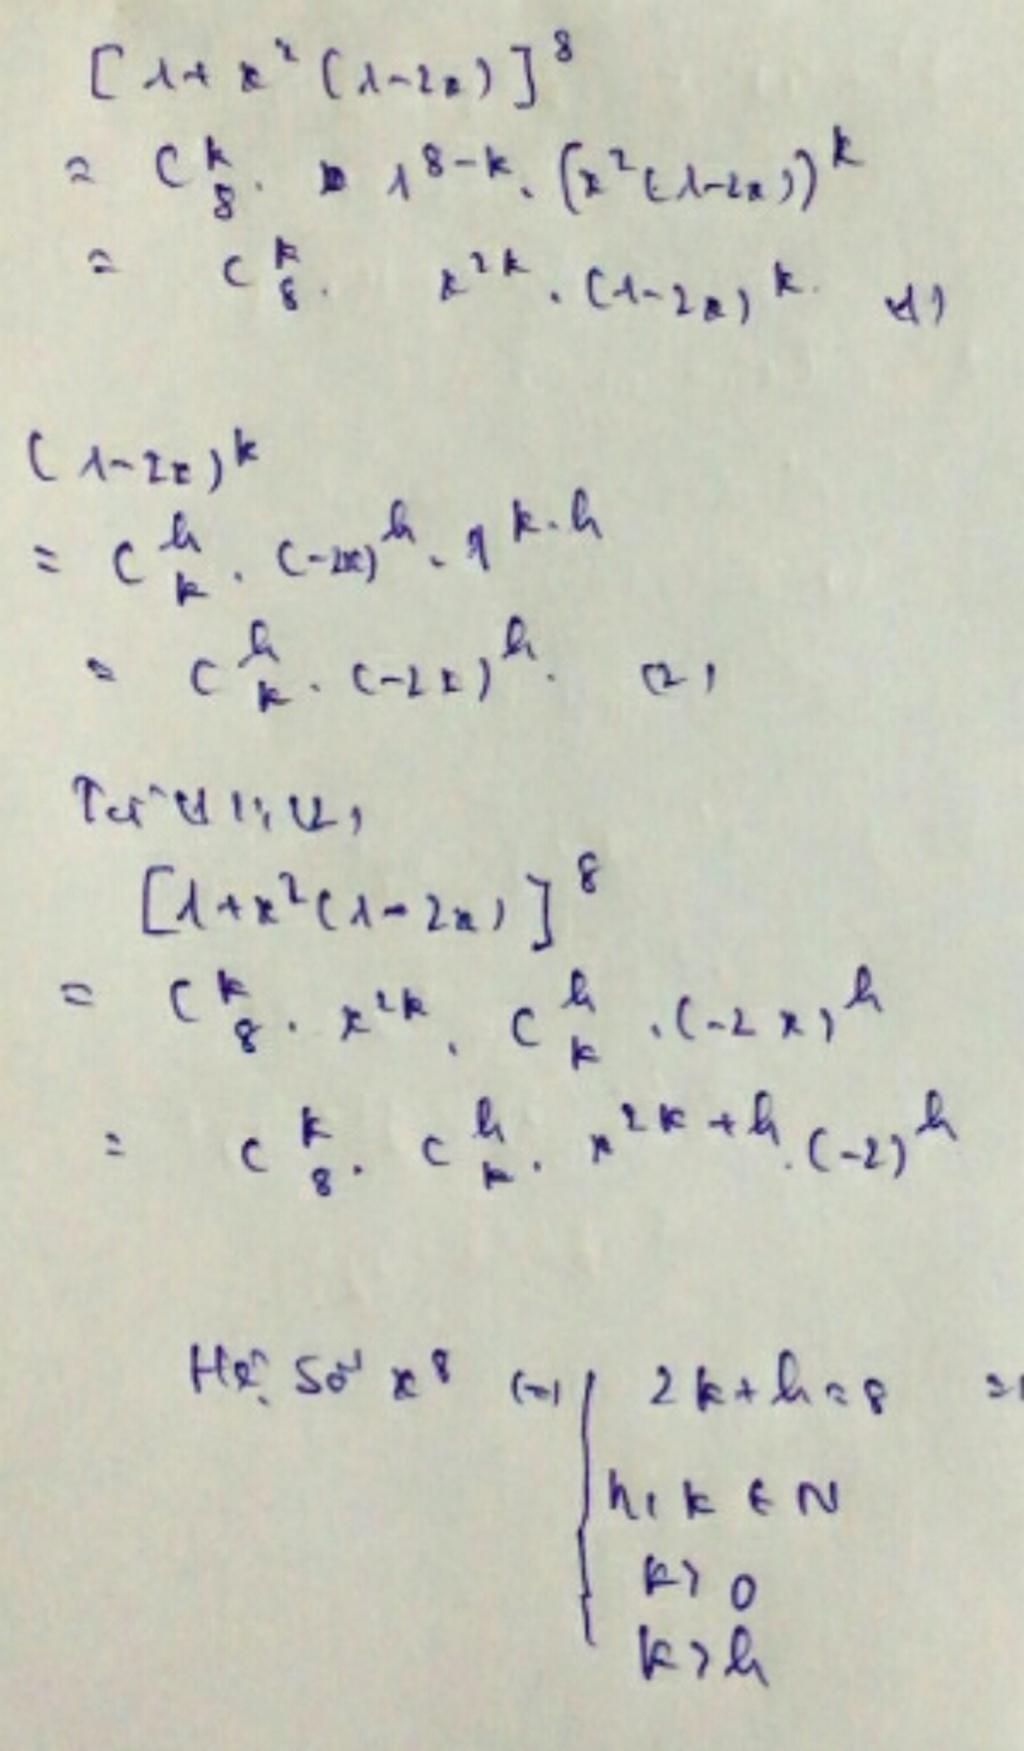 [1+x²(1-2x)]⁸
= C^k_8 . 1^{8-k} . (x²(1-2x))^k
= C^k_8 . x^{2k} . (1-2x)^k. (1)
(1-2x)^k
= C^h_k . (-2x)^h . 1^{k-h}
= C^h_k . (-2x)^h. (2)
Từ (1), (2)
[1+x²(1-2x)]⁸
= C^k_8 . x^{2k} . C^h_k . (-2x)^h
= C^k_8 . C^h_k . x^{2k+h} . (-2)^h
Hệ số x⁸ (=) { 2k+h=8 =)
h, k ∈ N
k> 0
k>h